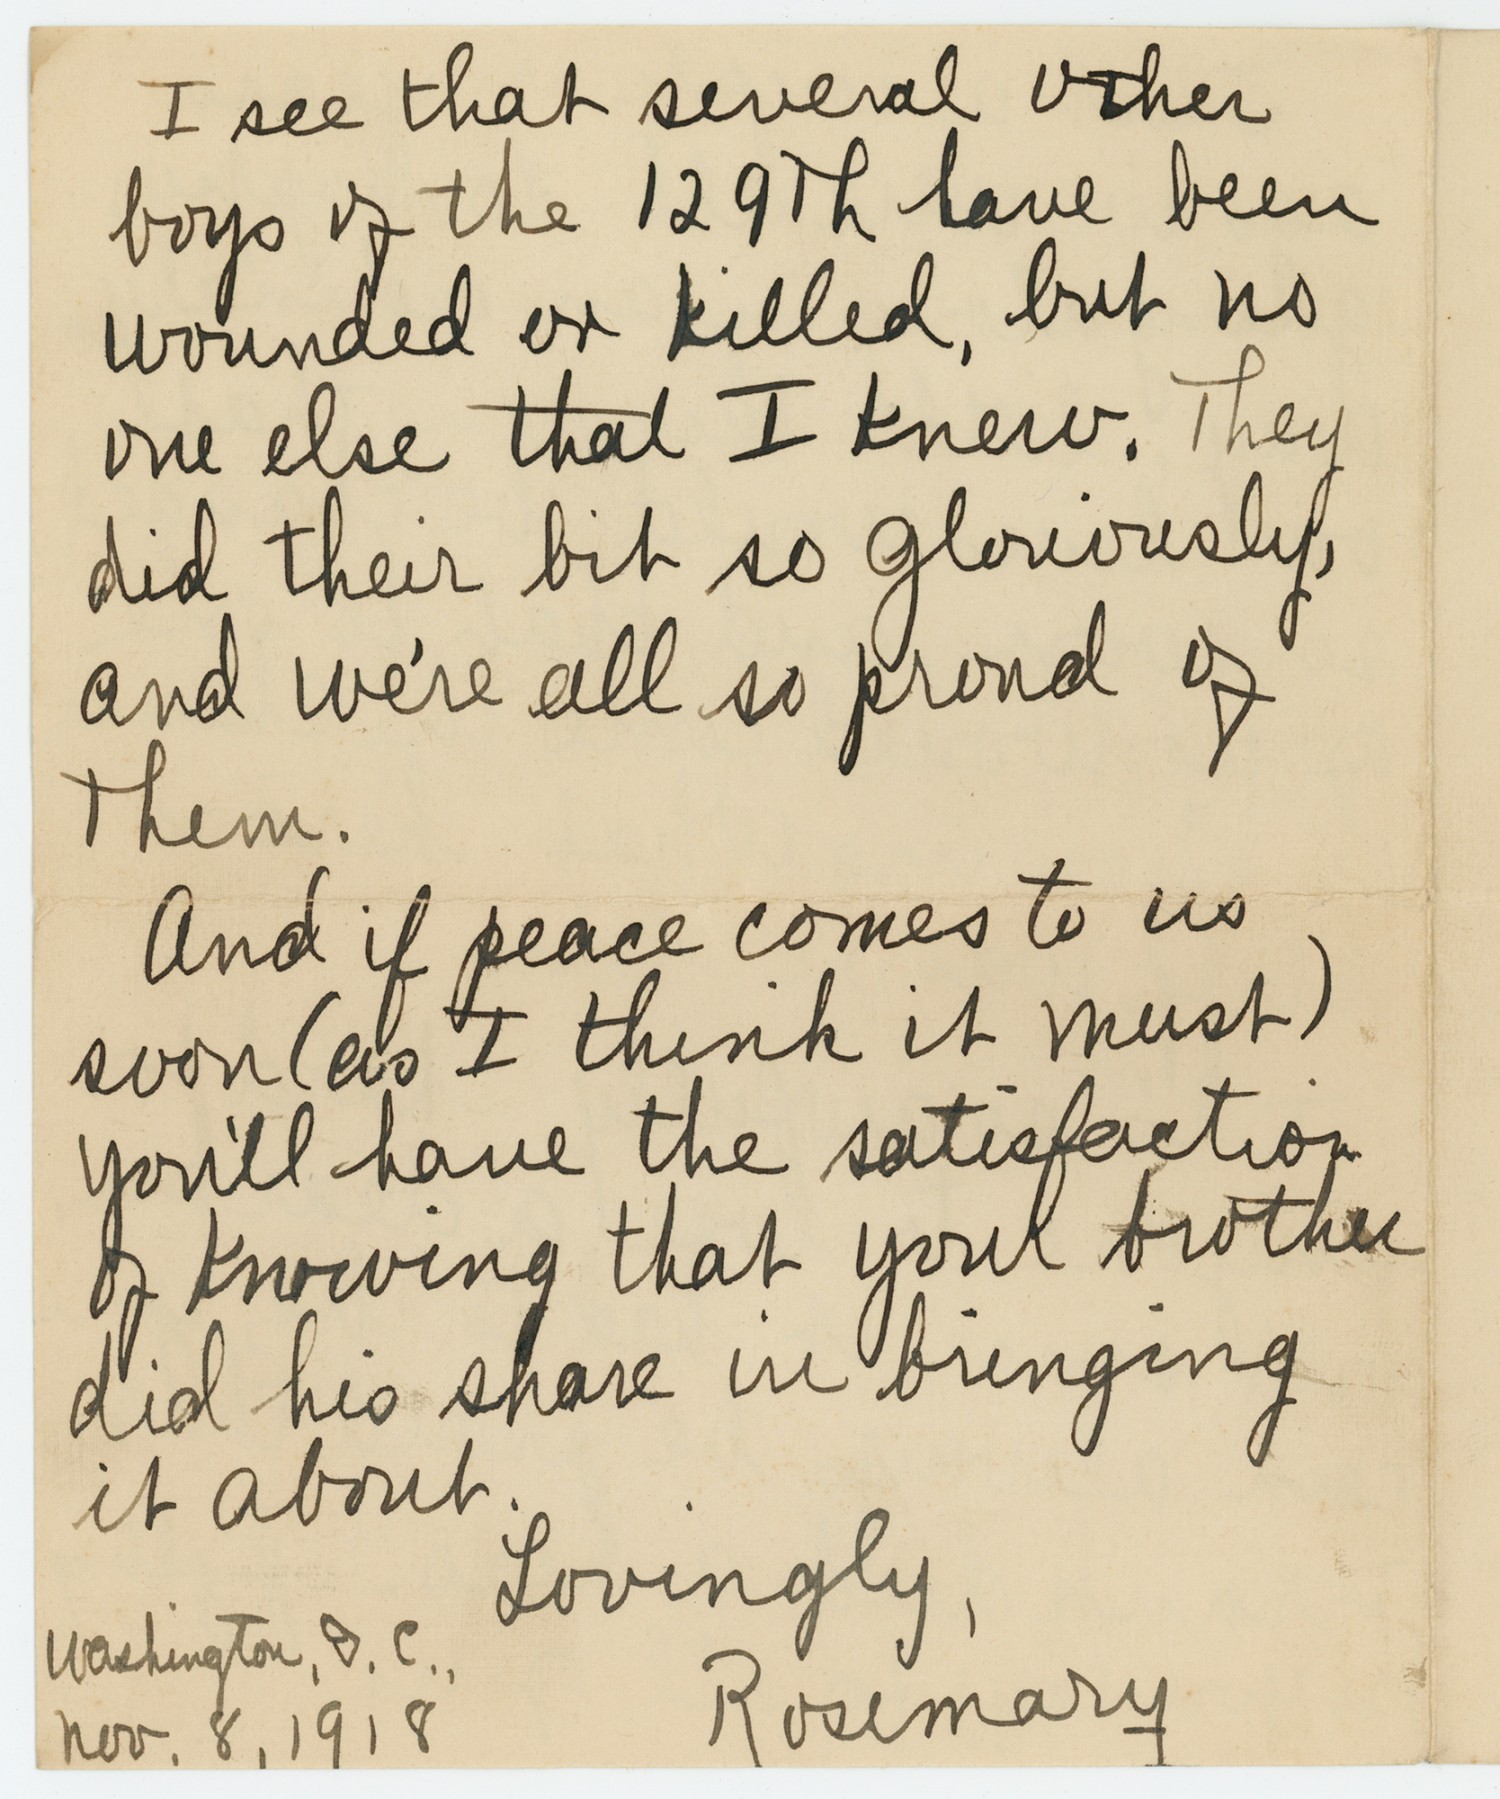 I see that several other
boys of the 129Th have been
wounded or killed, but no
one else that I knew. They
did their bit so gloriously,
and we're all so proud of
them.
And if peace comes to us
soon (as I think it must)
you'll have the satisfaction
of knowing that your brother
did his share in bringing
it about.
Lovingly,
Rosemary
Washington, D.C.,
Nov. 8, 1918